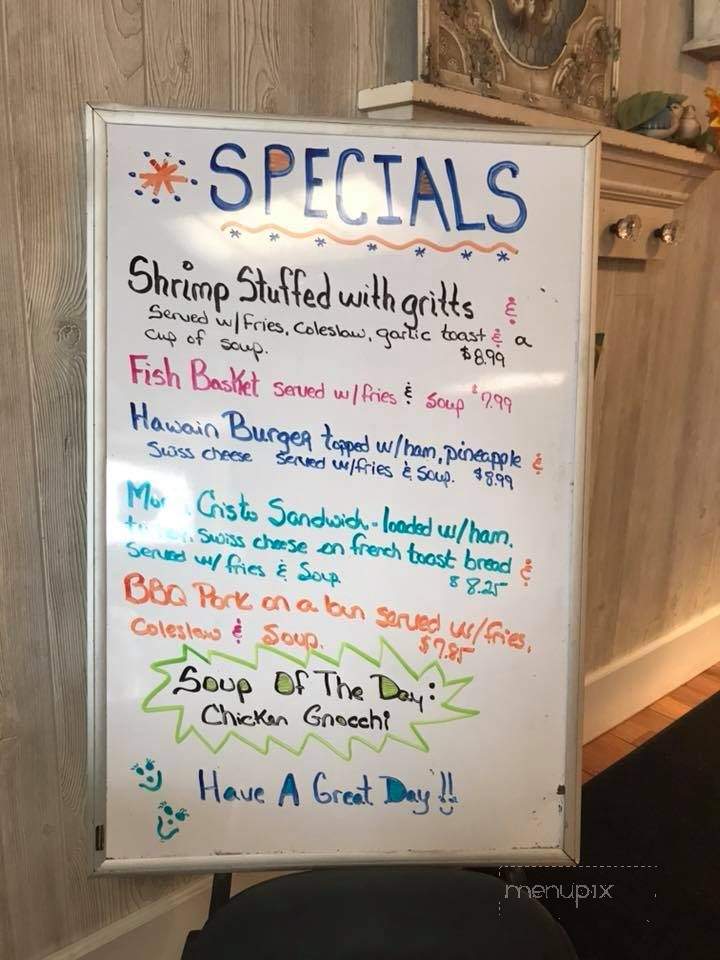 SPECIALS
Shrimp Stuffed with gritts &
Served w/fries, coleslaw, garlic toast & a
cup of soup. $8.99
Fish Basket served w/fries & soup $7.99
Hawain Burger topped w/ham, pineapple &
Swiss cheese served w/fries & soup. $8.99
Cristo Sandwich - loaded w/ham,
Swiss cheese on french toast bread &
Served w/ fries & Soup $8.25
BBQ Pork on a bun served w/fries,
Coleslaw & Soup. $7.85
Soup Of The Day:
Chicken Gnocchi
Have A Great Day!!
menupix